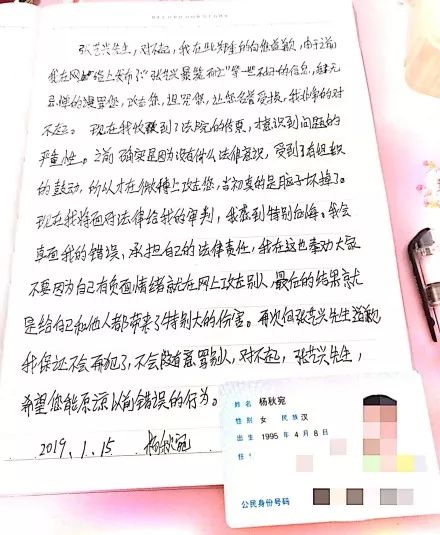 张艺兴先生，对不起，我在此郑重的向您道歉，由于之前
我在网络上发布了"张艺兴最能
等一些不好的信息，
的谩骂您，攻击您，诅咒您，让您名誉受损，我非常的对
不起。现在我收到了法院的传票，才意识到问题的
严重性。之前确实是因为没有什么法律意识，受到了有组织
的鼓动，所以才在微博上攻击您，当初真的是脑子坏掉了。
现在我将面对法律给我的审判，我感到特别后悔。我会
直面我的错误、承担自己的法律责任，我在这也奉劝大家
不要因为自己有负面情绪就在网上攻击别人，最后的结果就
是给自己和他人都带来了特别大的伤害。再次向张艺兴先生道歉
我保证不会再犯了，不会随意骂别人，对不起，张艺兴先生，
希望您能原谅以前错误的行为。
2019.1.15 杨秋宛
姓名 杨秋宛
性别 女 民族 汉
出生 1995 年 4 月 8 日
住
公民身份号码